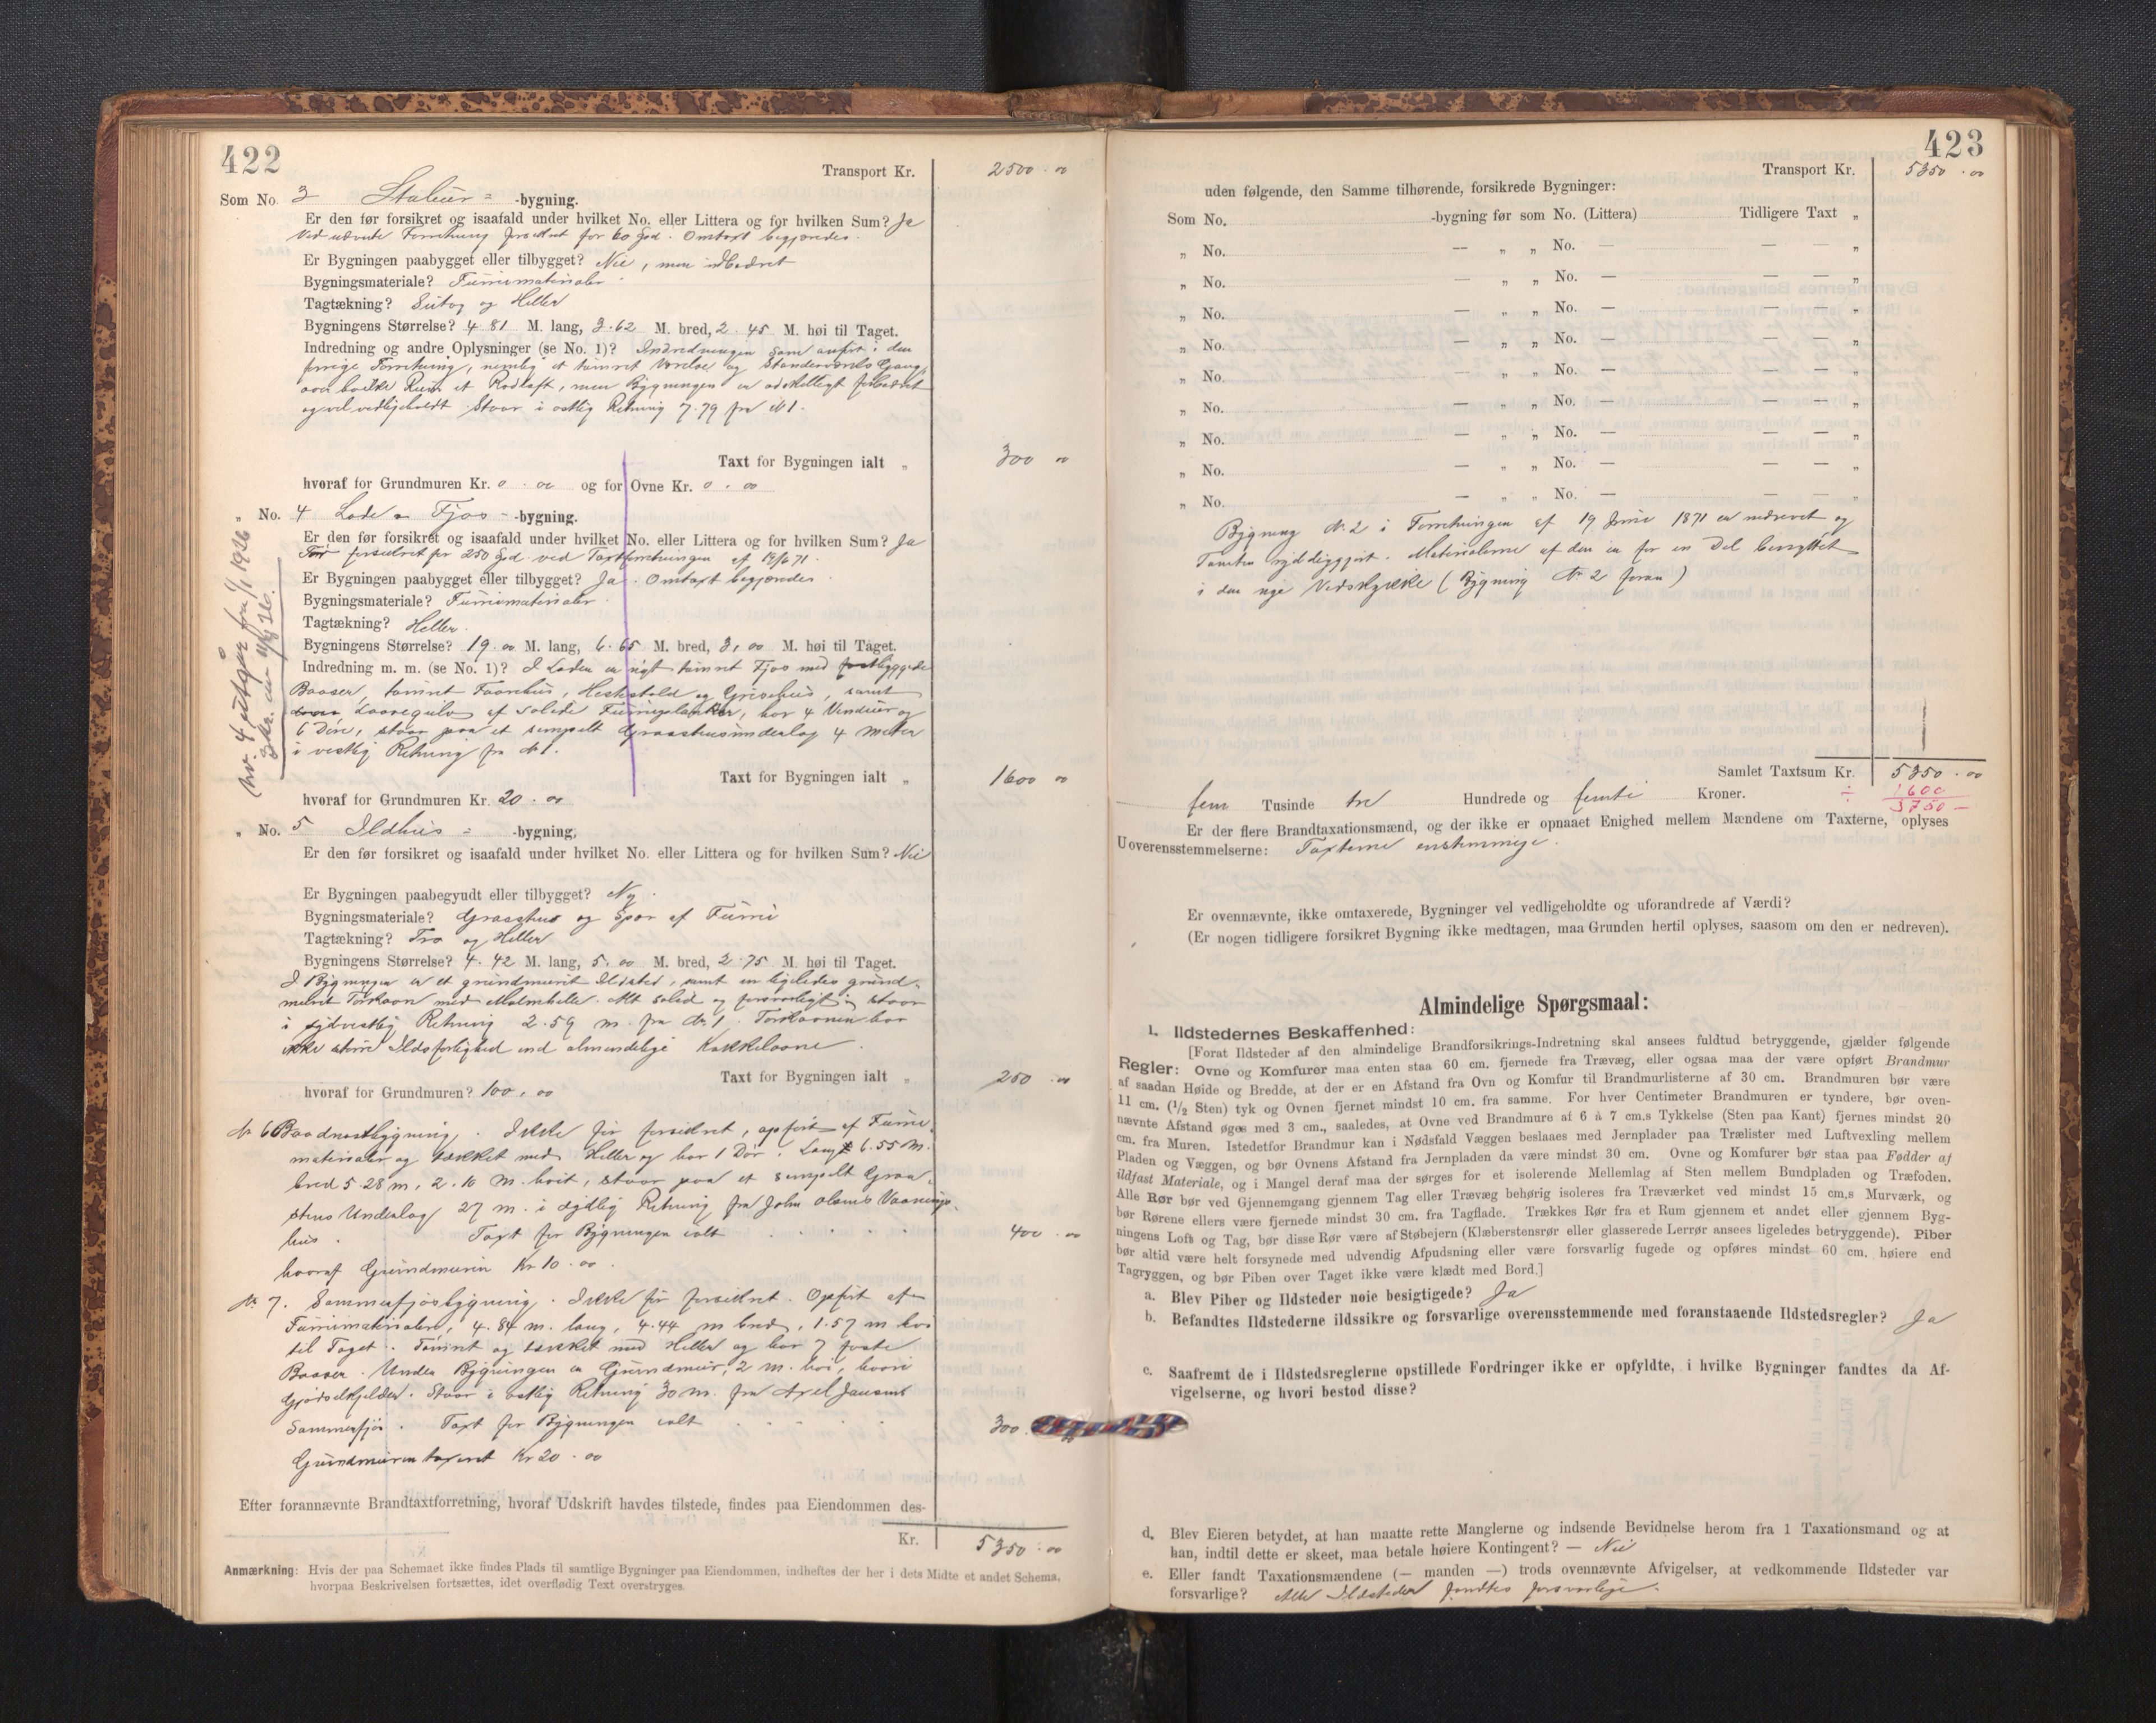 422
Transport Kr. 2500 . 00
Som No. 3 Stabur = -bygning.
Er den før forsikret og isaafald under hvilket No. eller Littera og for hvilken Sum? Ja
Ved nævnte Forretning forsikret for 60 Spd. Omtaxt begjæredes.
Er Bygningen paabygget eller tilbygget? Nei, men udbedret
Bygningsmateriale? Furrumaterialer.
Tagtækning? Sutag og Heller
Bygningens Størrelse? 4 81 M. lang, 3.62 M. bred, 2. 45 M. høi til Taget.
Indredning og andre Oplysninger (se No. 1)? Indredningen som anført i den
forrige Forretning, nemlig et tømret Værelse og Standerværks Gang,
over hvilke Rum et Rodloft, men Bygningen er adskilligt forbedret
og vel vedligeholdt. Staar i østlig Retning 7.79 fra N 1.
Taxt for Bygningen ialt „ 300 00
hvoraf for Grundmuren Kr. 0 . 00 og for Ovne Kr. 0 . 00
„ No. 4 Lade o Fjøs - -bygning.
Er den før forsikret og isaafald under hvilket No. eller Littera og for hvilken Sum? Ja
Før forsikret for 250 Spd. ved Taxtforretningen af 19/6 71.
Er Bygningen paabygget eller tilbygget? Ja. Omtaxt begjæredes.
Bygningsmateriale? Furrumaterialer.
Tagtækning? Heller.
Bygningens Størrelse? 19. 00 M. lang, 6. 65 M. bred, 3, 00 M. høi til Taget.
Indredning m. m. (se No. 1)? I Laden er nyt tømret Fjøs med fastbyggede
Baaser, tømret Faarehus, Hestestald og Grisehus, samt
Laavegulv af solide Furruplanker, har 4 Vinduer og
6 Døre, staar paa et simpelt Graastensunderlag 4 Meter
i vestlig Retning fra N 1.
Taxt for Bygningen ialt „ 1600 00
hvoraf for Grundmuren Kr. 20 . 00
Nr. 4 utgår fra 1/1 1926
„ No. 5 Ildhus = -bygning,
Er den før forsikret og isaafald under hvilket No. eller Littera og for hvilken Sum? Nei
Er Bygningen paabegyndt eller tilbygget? Ny.
Bygningsmateriale? Graasten og Spor af Furru
Tagtækning? Tro og Heller
Bygningens Størrelse? 4. 42 M. lang, 5. 00 M. bred, 2 75 M. høi til Taget.
I Bygningen er et grundmuret Ildsted, samt en ligeledes grund-
muret Tørkeovn med Malmhelle. Alt solid og forsvarligt; staar
i sydvestlig Retning 2.59 m. fra N. 1. Tørkeovnen har
ikke større Ildsfarlighed end almindelige Kakkelovne.
Taxt for Bygningen ialt „ 250 . 00
hvoraf for Grundmuren? 100 , 00
N 6 Baadnøstbygning. Ikke før forsikret, opført af Furru-
materialer og tækket med Heller og har 1 Dør. Langt 6.55 M.
bred 5.28 m, 2. 10 M. høit, staar paa et simpelt Graa-
stens Underlag 27 m. i sydlig Retning fra John Olsens Vaanings-
hus. Taxt for Bygningen ialt . . . . 400 . 00
hvoraf Grundmuren Kr 10 . 00.
N. 7. Sommerfjøsbygning. Ikke før forsikret. Opført af
Furrumaterialer, 4.84 m. lang, 4.44 m bred, 1.57 m høi
til Taget. Tømret og tækket med Heller og har 7 faste
Baaser. Under Bygningen er Grundmur, 2 m. høi, hvori
Gjødselkjelder. Staar i østlig Retning 30 m. fra Axel Jansens
Sommerfjøs. Taxt for Bygningen ialt . . . . 300.
Grundmuren taxeret Kr 20 . 00
Efter forannævnte Brandtaxtforretning, hvoraf Udskrift havdes tilstede, findes paa Eiendommen des-
Kr. 5350 . 00
Anmærkning: Hvis der paa Schemaet ikke findes Plads til samtlige Bygninger paa Eiendommen, indheftes der her i dets Midte et andet Schema,
hvorpaa Beskrivelsen fortsættes, idet overflødig Text overstryges.
423
Transport Kr. 5350 . 00
uden følgende, den Samme tilhørende, forsikrede Bygninger:
Som No. -bygning før som No. (Littera) Tidligere Taxt „
„ No. — „ „ No. — — — „
„ No. — „ „ No. — — — „
„ No. — „ „ No. — — — „
„ No. — „ „ No. — — — „
„ No. — „ „ No. — — — „
„ No. — „ „ No. — — — „
„ No. — „ „ No. — — — „
„ No. — „ „ No. — — — „
„ No. — „ „ No. — — — „
Bygning N. 2 i Forretningen af 19 Juni 1871 er nedrevet og
Tomten ryddiggjort. Materialerne af den er for en Del benyttet
i den nye Vedskykke (Bygning N. 2 foran)
Samlet Taxtsum Kr. 5350 . 00
fem Tusinde tre Hundrede og femti Kroner. ÷ 1600
3750 —
Er der flere Brandtaxationsmænd, og der ikke er opnaaet Enighed mellem Mændene om Taxterne, oplyses
Uoverensstemmelserne: Taxterne enstemmige.
Er ovennævnte, ikke omtaxerede, Bygninger vel vedligeholdte og uforandrede af Værdi?
(Er nogen tidligere forsikret Bygning ikke medtagen, maa Grunden hertil oplyses, saasom om den er nedreven).
Almindelige Spørgsmaal:
1. Ildstedernes Beskaffenhed:
[Forat Ildsteder af den almindelige Brandforsikrings-Indretning skal ansees fuldtud betryggende, gjælder følgende
Regler: Ovne og Komfurer maa enten staa 60 cm. fjernede fra Trævæg, eller ogsaa maa der være opført Brandmur
af saadan Høide og Bredde, at der er en Afstand fra Ovn og Komfur til Brandmurlisterne af 30 cm. Brandmuren bør være
11 cm. (1/2 Sten) tyk og Ovnen fjernet mindst 10 cm. fra samme. For hver Centimeter Brandmuren er tyndere, bør oven-
nævnte Afstand øges med 3 cm., saaledes, at Ovne ved Brandmure af 6 à 7 cm.s Tykkelse (Sten paa Kant) fjernes mindst 20
cm. fra Muren. Istedetfor Brandmur kan i Nødsfald Væggen beslaaes med Jernplader paa Trælister med Luftvexling mellem
Pladen og Væggen, og bør Ovnens Afstand fra Jernpladen da være mindst 30 cm. Ovne og Komfurer bør staa paa Fødder af
ildfast Materiale, og i Mangel deraf maa der sørges for et isolerende Mellemlag af Sten mellem Bundpladen og Træfoden.
Alle Rør bør ved Gjennemgang gjennem Tag eller Trævæg behørig isoleres fra Træverket ved mindst 15 cm,s Murværk, og
bør Rørene ellers være fjernede mindst 30 cm. fra Tagflade. Trækkes Rør fra et Rum gjennem et andet eller gjennem Byg-
ningens Loft og Tag, bør disse Rør være af Støbejern (Klæberstensrør eller glasserede Lerrør ansees ligeledes betryggende). Piber
bør altid være helt forsynede med udvendig Afpudsning eller være forsvarlig fugede og opføres mindst 60 cm. høiere end
Tagryggen, og bør Piben over Taget ikke være klædt med Bord.]
a. Blev Piber og Ildsteder nøie besigtigede? Ja
b. Befandtes Ildstederne ildssikre og forsvarlige overensstemmende med foranstaaende Ildstedsregler? Ja
c. Saafremt de i Ildstedsreglerne opstillede Fordringer ikke er opfyldte, i hvilke Bygninger fandtes da Af-
vigelserne, og hvori bestod disse?
d. Blev Eieren betydet, at han maatte rette Manglerne og indsende Bevidnelse herom fra 1 Taxationsmand og at
han, indtil dette er skeet, maa betale høiere Kontingent? — Nei
e. Eller fandt Taxationsmændene (— manden —) trods ovennævnte Afvigelser, at vedkommende Ildsteder var
forsvarlige? Alle Ildsteder fandtes forsvarlige.